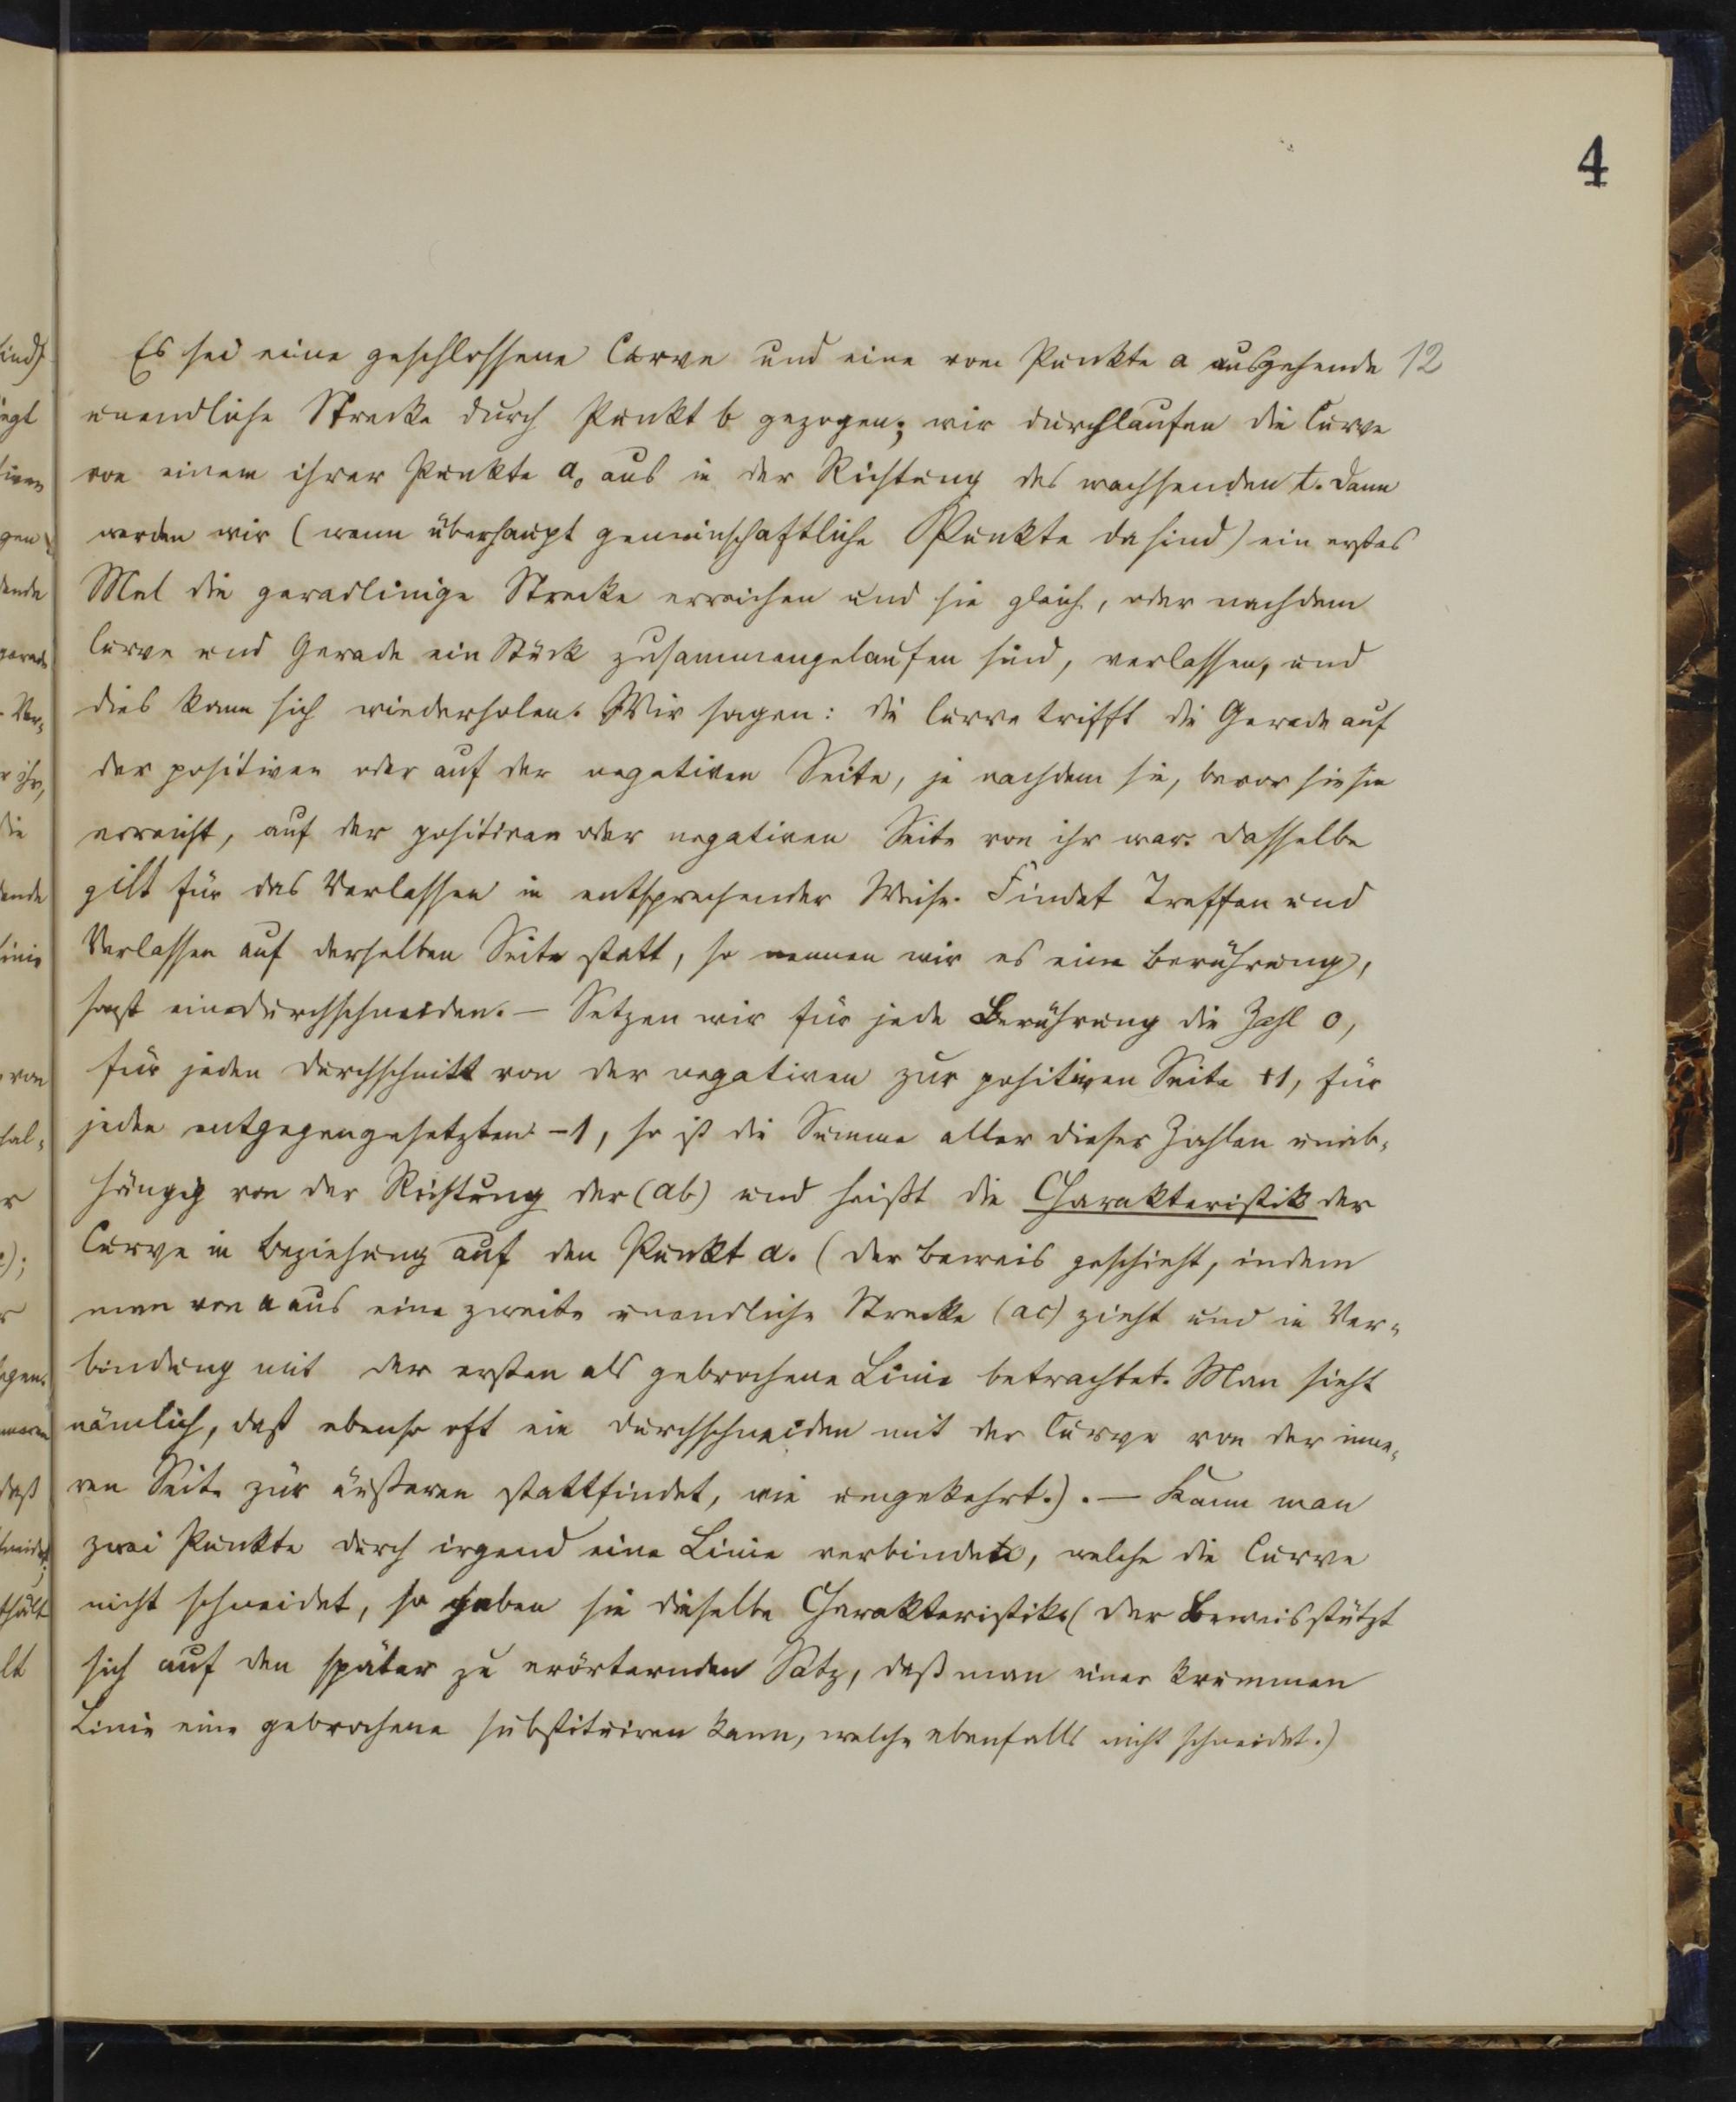 4
Es sei eine geschlossene Curve und eine vom Punkte a ausgehende 12
unendliche Strecke durch Punkt b gezogen; wir durchlaufen die Curve
von einem ihrer Punkte a₀ aus in der Richtung des wachsenden t. Dann
werden wir (wenn überhaupt gemeinschaftliche Punkte da sind) ein erstes
Mal die geradlinige Strecke erreichen und sie gleich, oder nachdem
Curve und Gerade ein Stück zusammengelaufen sind, verlassen, und
dies kann sich wiederholen. Wir sagen: die Curve trifft die Gerade auf
der positiven oder auf der negativen Seite, je nachdem sie, bevor sie sie
erreicht, auf der positiven oder negativen Seite von ihr war. Dasselbe
gilt für das Verlassen in entsprechender Weise. Findet Treffen und
Verlassen auf derselben Seite statt, so nennen wir es eine Berührung,
sonst ein Durchschneiden. — Setzen wir für jede Berührung die Zahl 0,
für jeden Durchschnitt von der negativen zur positiven Seite +1, für
jeden entgegengesetzten -1, so ist die Summe aller dieser Zahlen unab-
hängig von der Richtung der (ab) und heißt die Charakteristik der
Curve in Beziehung auf den Punkt a. (Der Beweis geschieht, indem
man von a aus eine zweite unendliche Strecke (ac) zieht und in Ver-
bindung mit der ersten als gebrochene Linie betrachtet. Man sieht
nämlich, daß ebenso oft ein Durchschneiden mit der Curve von der inne-
ren Seite zur äußeren stattfindet, wie umgekehrt.). — Kann man
zwei Punkte durch irgend eine Linie verbinden, welche die Curve
nicht schneidet, so haben sie dieselbe Charakteristik (Der Beweis stützt
sich auf den später zu erörternden Satz, daß man einer krummen
Linie eine gebrochene substituiren kann, welche ebenfalls nicht schneidet.)